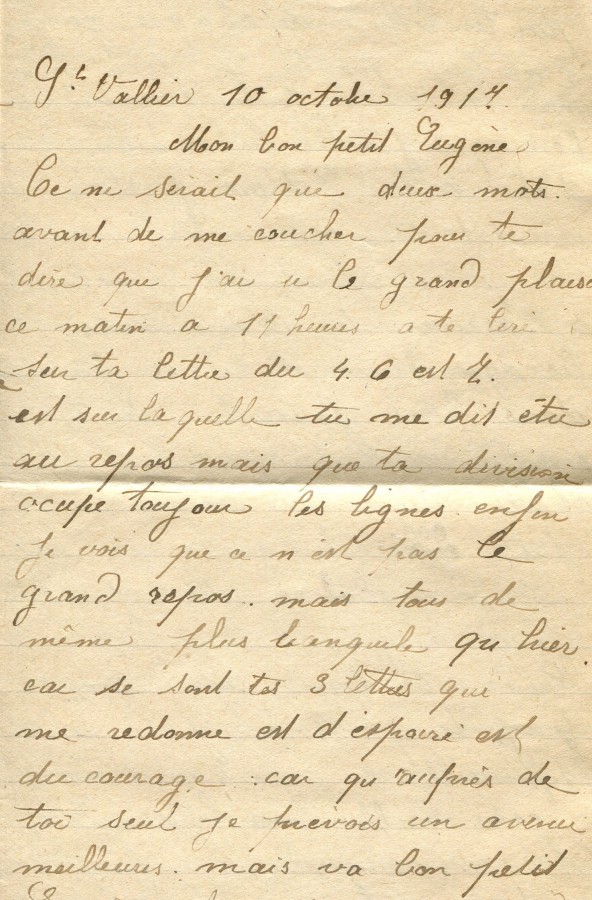 St Vallier 10 octobre 1917.
Mon bon petit Eugène.
Ce ne serait que deux mots.
avant de me coucher pour te
dire que j'ai u le grand plaisir
ce matin a 11 heures a te lire
sur ta lettre du 4. 6 est 7.
est sur laquelle tu me dit être
au repos mais que ta division
ocupe toujour les lignes enfin
je vois que ce n'est pas le
grand repos. mais tous de
même plus tranquile qu hier.
car se sont tes 3 lettres qui
me redonne est d'espoire est
du courage. car qu'auprès de
toi seul je prevois un avenir
meilleures. mais va bon petit